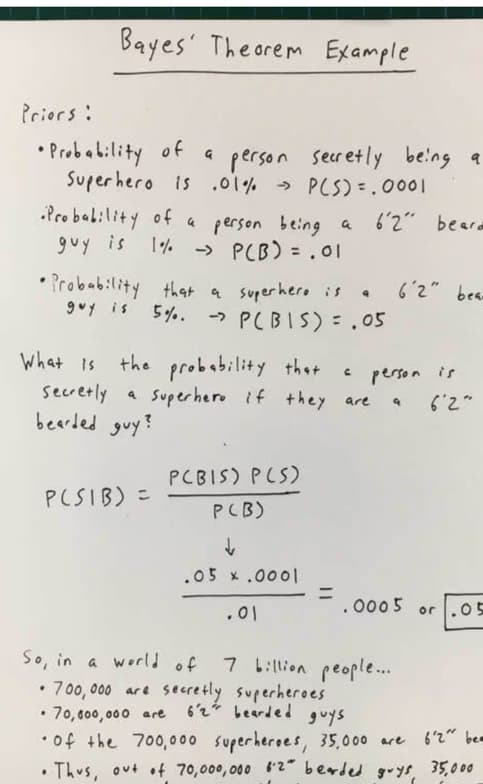 Bayes' Theorem Example
Priors:
• Probability of a person secretly being a
Superhero is .01% → P(S) = .0001
• Probability of a person being a 6'2" beard
guy is 1% → P(B) = .01
• Probability that a superhero is a 6'2" bea
guy is 5%. → P(B|S) = .05
What is the probability that a person is
secretly a superhero if they are a 6'2"
bearded guy?
P(S|B) = P(B|S) P(S)
P(B)
↓
.05 x .0001
.01
= .0005 or .05
So, in a world of 7 billion people...
• 700,000 are secretly superheroes
• 70,000,000 are 6'2" bearded guys
• Of the 700,000 superheroes, 35,000 are 6'2" bea
• Thus, out of 70,000,000 6'2" bearded guys, 35,000